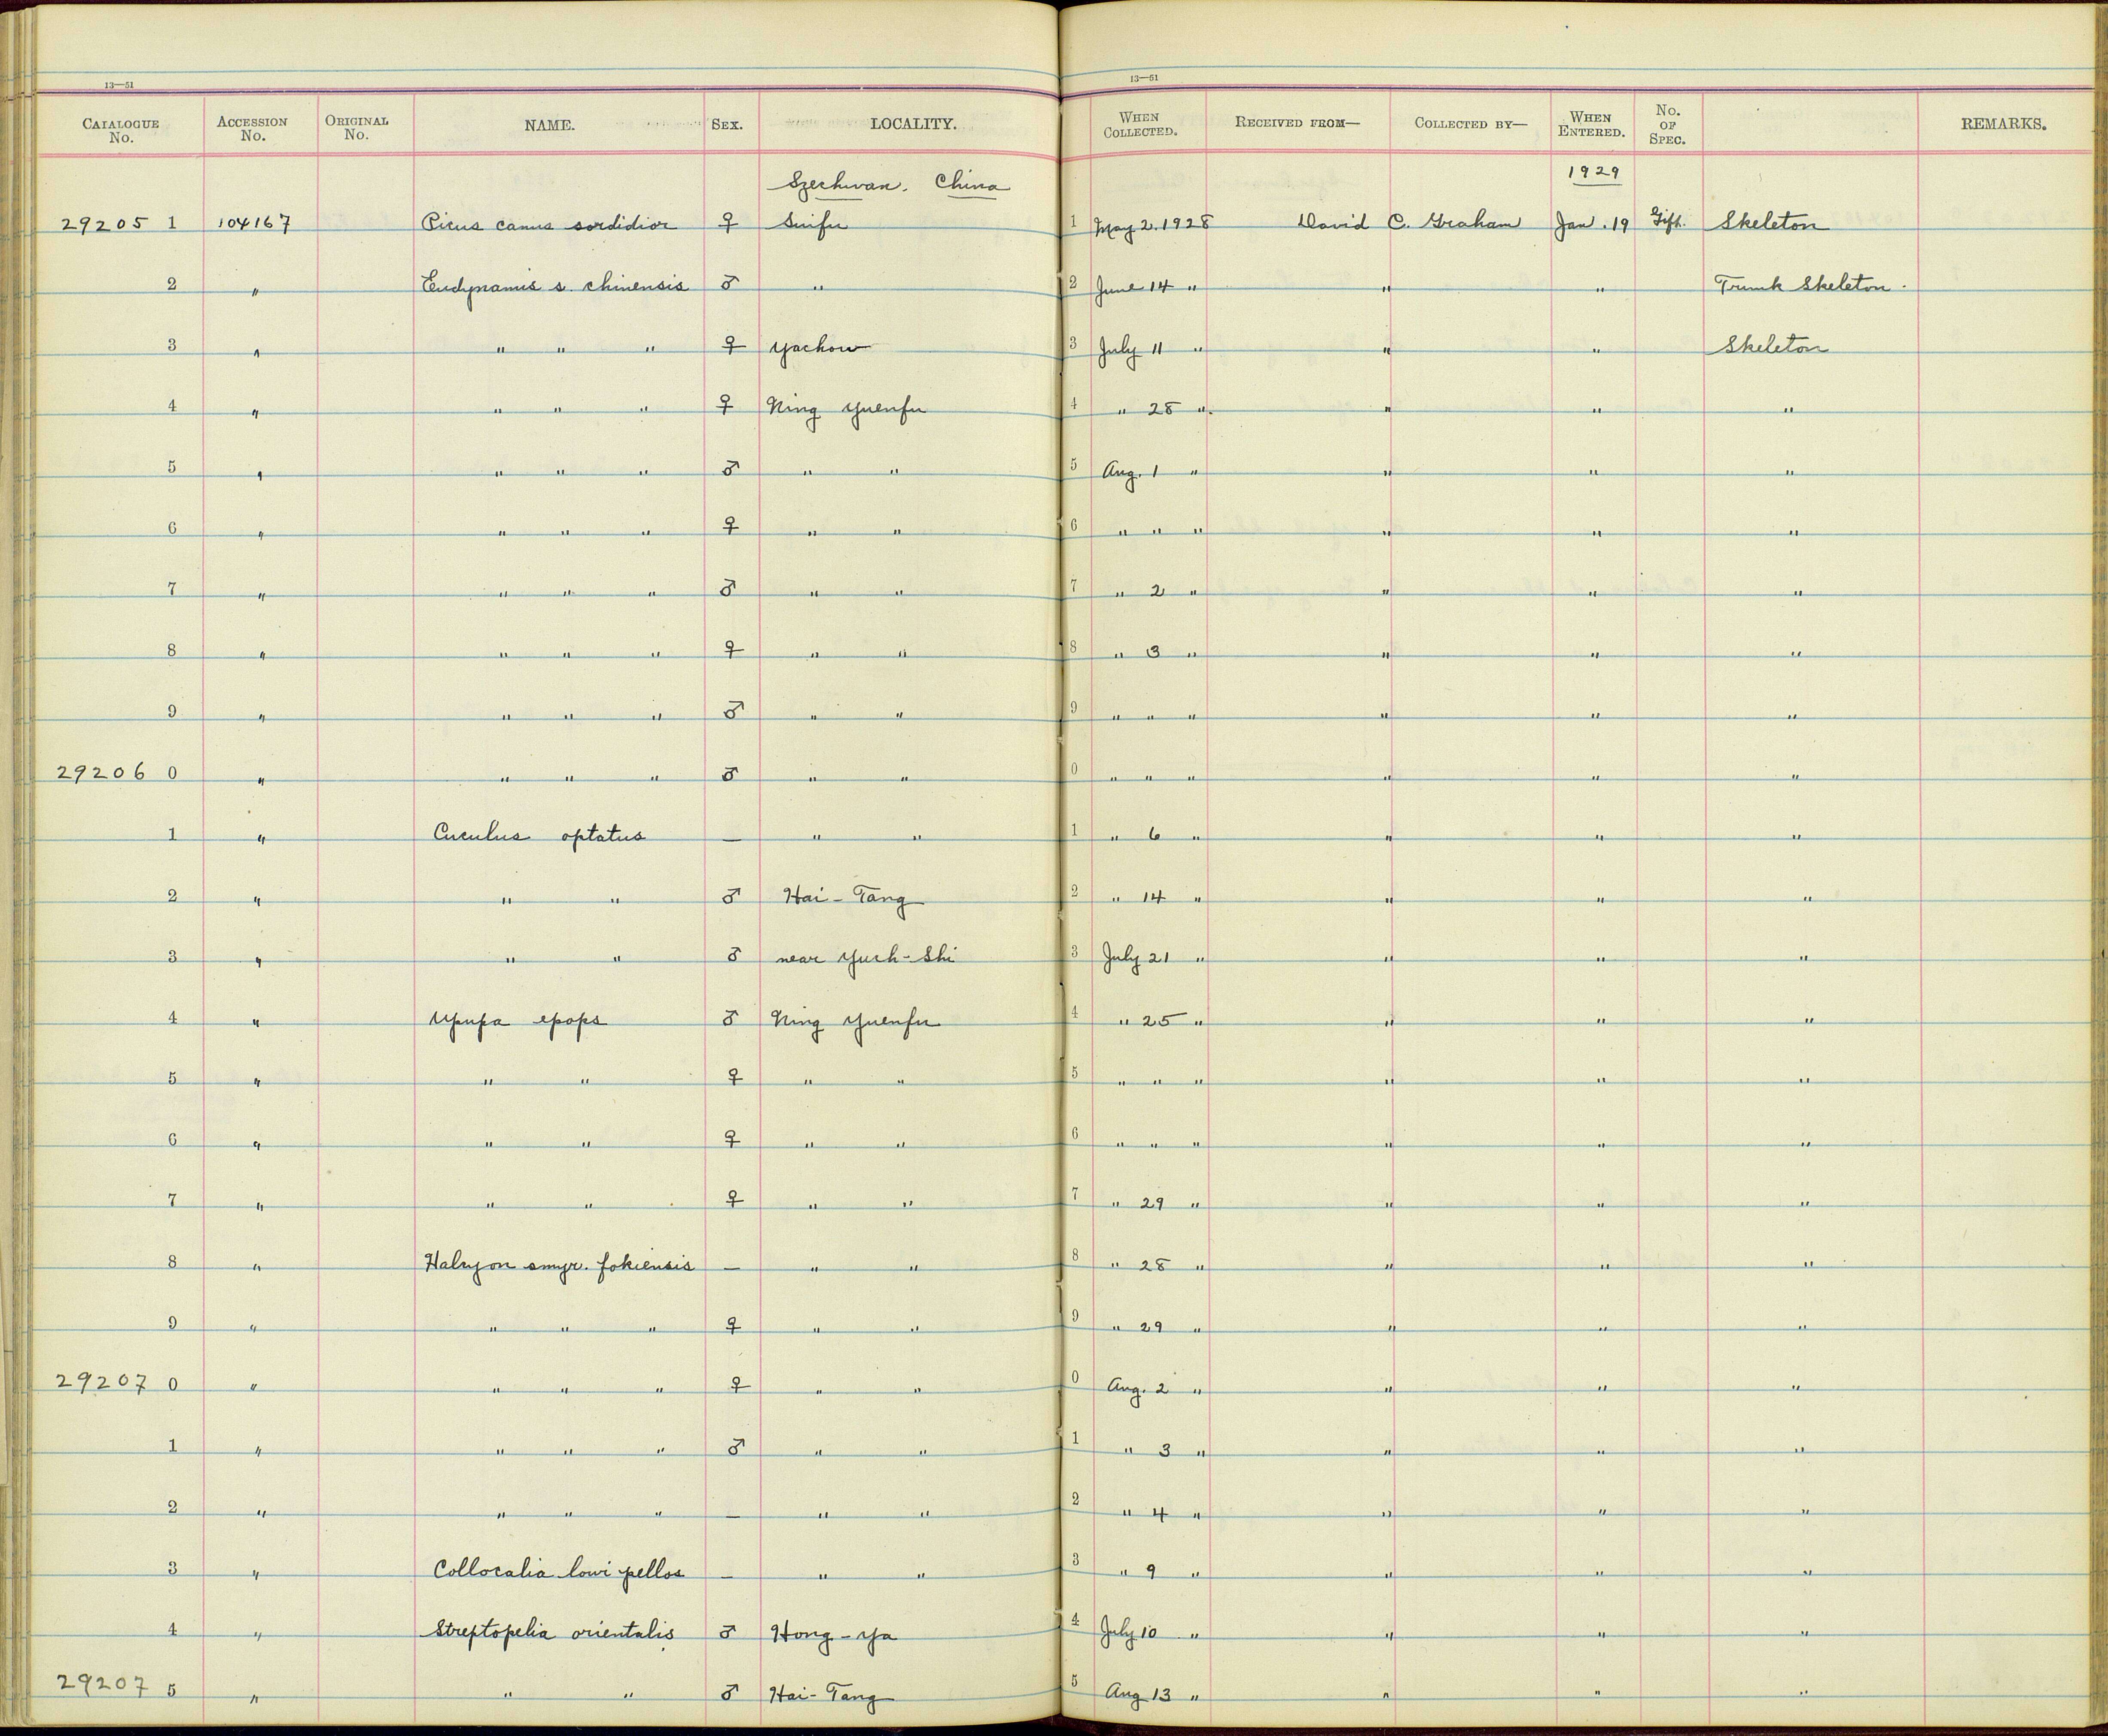 13—51
13—51
CATALOGUE No. ACCESSION No. ORIGINAL No. NAME. SEX. LOCALITY. WHEN COLLECTED. RECEIVED FROM— COLLECTED BY— WHEN ENTERED. No. OF SPEC. REMARKS.
Szechwan. China 1929
29205 1 104167 Picus canus sordidior ♀ Suifu 1 May 2. 1928 David C. Graham Jan. 19 Gift. Skeleton
2 " Eudynamis s. chinensis ♂ " 2 June 14 " " " Trunk Skeleton.
3 " " " " ♀ Yachow 3 July 11 " " " Skeleton
4 " " " " ♀ Ning Yuenfu 4 " 28 " " " "
5 " " " " ♂ " " 5 Aug. 1 " " " "
6 " " " " ♀ " " 6 " " " " " "
7 " " " " ♂ " " 7 " 2 " " " "
8 " " " " ♀ " " 8 " 3 " " " "
9 " " " " ♂ " " 9 " " " " " "
29206 0 " " " " ♂ " " 0 " " " " " "
1 " Cuculus optatus — " " 1 " 6 " " " "
2 " " " ♂ Hai-Tang 2 " 14 " " " "
3 " " " ♂ near Yueh-Shi 3 July 21 " " " "
4 " Upupa epops ♂ Ning Yuenfu 4 " 25 " " " "
5 " " " ♀ " " 5 " " " " " "
6 " " " ♀ " " 6 " " " " " "
7 " " " ♀ " " 7 " 29 " " " "
8 " Halcyon smyr. fokiensis — " " 8 " 28 " " " "
9 " " " " ♀ " " 9 " 29 " " " "
29207 0 " " " " ♀ " " 0 Aug. 2 " " " "
1 " " " " ♂ " " 1 " 3 " " " "
2 " " " " — " " 2 " 4 " " " "
3 " Collocalia lowi pellos — " " 3 " 9 " " " "
4 " Streptopelia orientalis ♂ Hong-Ya 4 July 10 " " " "
29207 5 " " " ♂ Hai-Tang 5 Aug 13 " " " "